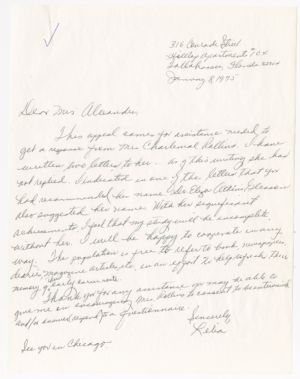 316 Conradi Street
Apartments
Tallahassee, Florida
January 8, 1975
Dear Mrs Alexander,
This appeal comes for assistance needed to
get a response from Mrs Charlemae Rollins. I have
written two letters to her. As of this writing she has
not replied. I indicated in one of the letters that you
had recommended her name. Dr Eliza Atkins Gleason
also suggested her name. With her significant
achievements I feel that my study will be incomplete
without her. I will be happy to cooperate in any
way. The population is free to refer to books, newspapers,
diaries, magazine articles etc, in an effort to help refresh their
memory of early events.
Thank you for any assistance you may be able to
give me in encouraging Mrs Rollins to consent to be interviewed
and/or respond to a questionnaire.
Sincerely
See you in Chicago.